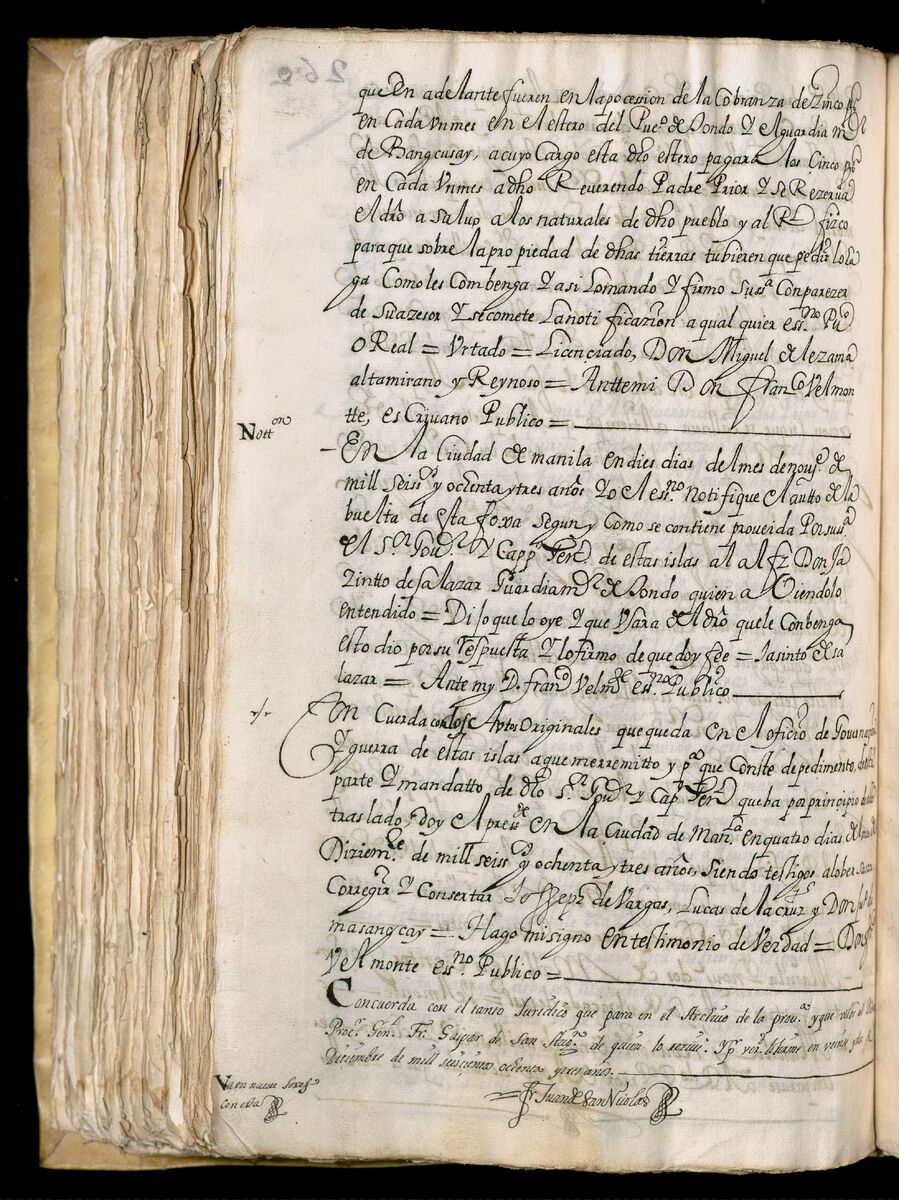 que En adelante fueren en la pocession de la Cobranza de Zinco ps
en Cada Vn mes en el estero del Pueo de tondo Y el guardia mor
de Bangcusay, a cuyo Cargo esta dho estero pagara los Cinco ps
en Cada Vn mes a dho Reuerendo Padre Prior Y se Rezerua
el dro a saluo a los naturales de dho pueblo y al Rl fizco
para que sobre la propiedad de dhas tierras tubieren que pedir lo ha
ga Como les Combenga Y asi lo mando Y firmo Su ssa Con parezer
de Su azesor Y se comete la notificazion a qual quier essno Puco
o Real = Vrtado = Licenciado, Don Miguel de lezama
altamirano y Reynoso = Anttemi Don franco Velmon
tte, esCriuano Publico =
Notton
En la Ciudad de manila en dies dias del mes de noue de
mill seissos y ochenta y tres años Yo el essno notifique el autto de la
buelta de esta foxa segun y Como se contiene proueida Por su ssa
el Sor Gour Y Capp Genl de estas islas al alfz Don Ja
Zintto de salazar Guardiamor de tondo quien a Oiendolo
entendido = Dijo que lo oye Y que Vsara del dro que le Conbenga
esto dio por su respuesta Y lo firmo de que doy fee = Jasinto de sa
lazar = Ante my D. frano Velmte essno Publico
Con Cuerda con los Autos Originales que queda en el oficio de Gouernazon
Y guerra de estas islas a que me rremitto y pa que Conste de pedimento, de
parte Y mandatto, de dho Sor Gour y Capn Genl que ba por principio de
traslado, doy el presste en la Ciudad de Mana en quatro dias del mes de
Diziemre de mill seissos y ochenta y tres años, siendo testigos a lo ber sacar
Corregir Y Consertar Josseph de Vargas, Lucas de la cruz y Don
masangcay = Hago mi signo en testimonio de Verdad = Don
Velmonte essno Publico =
Concuerda con el tanto Juridico que para en el Archiuo de la proua y que
Procr Genl Fr. Gaspar de San Augn de quien lo reziui. Y pr verd lo firme en veinte y
Diciembre de mill seiscientos ochenta y tres años.
Va en nueue foxas
con esta
Fr Juan de San Nicolas